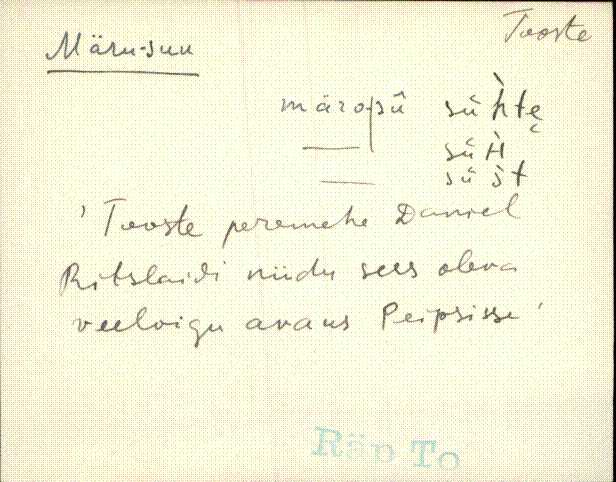 Tooste
Märu-suu
märo|sū̂ sǜhtę
— süH̀
— süs̀t
' Tooste peremehe Daniel
Ritslaidi niidu sees oleva
veeloigu avaus Peipsisse '
Räp To